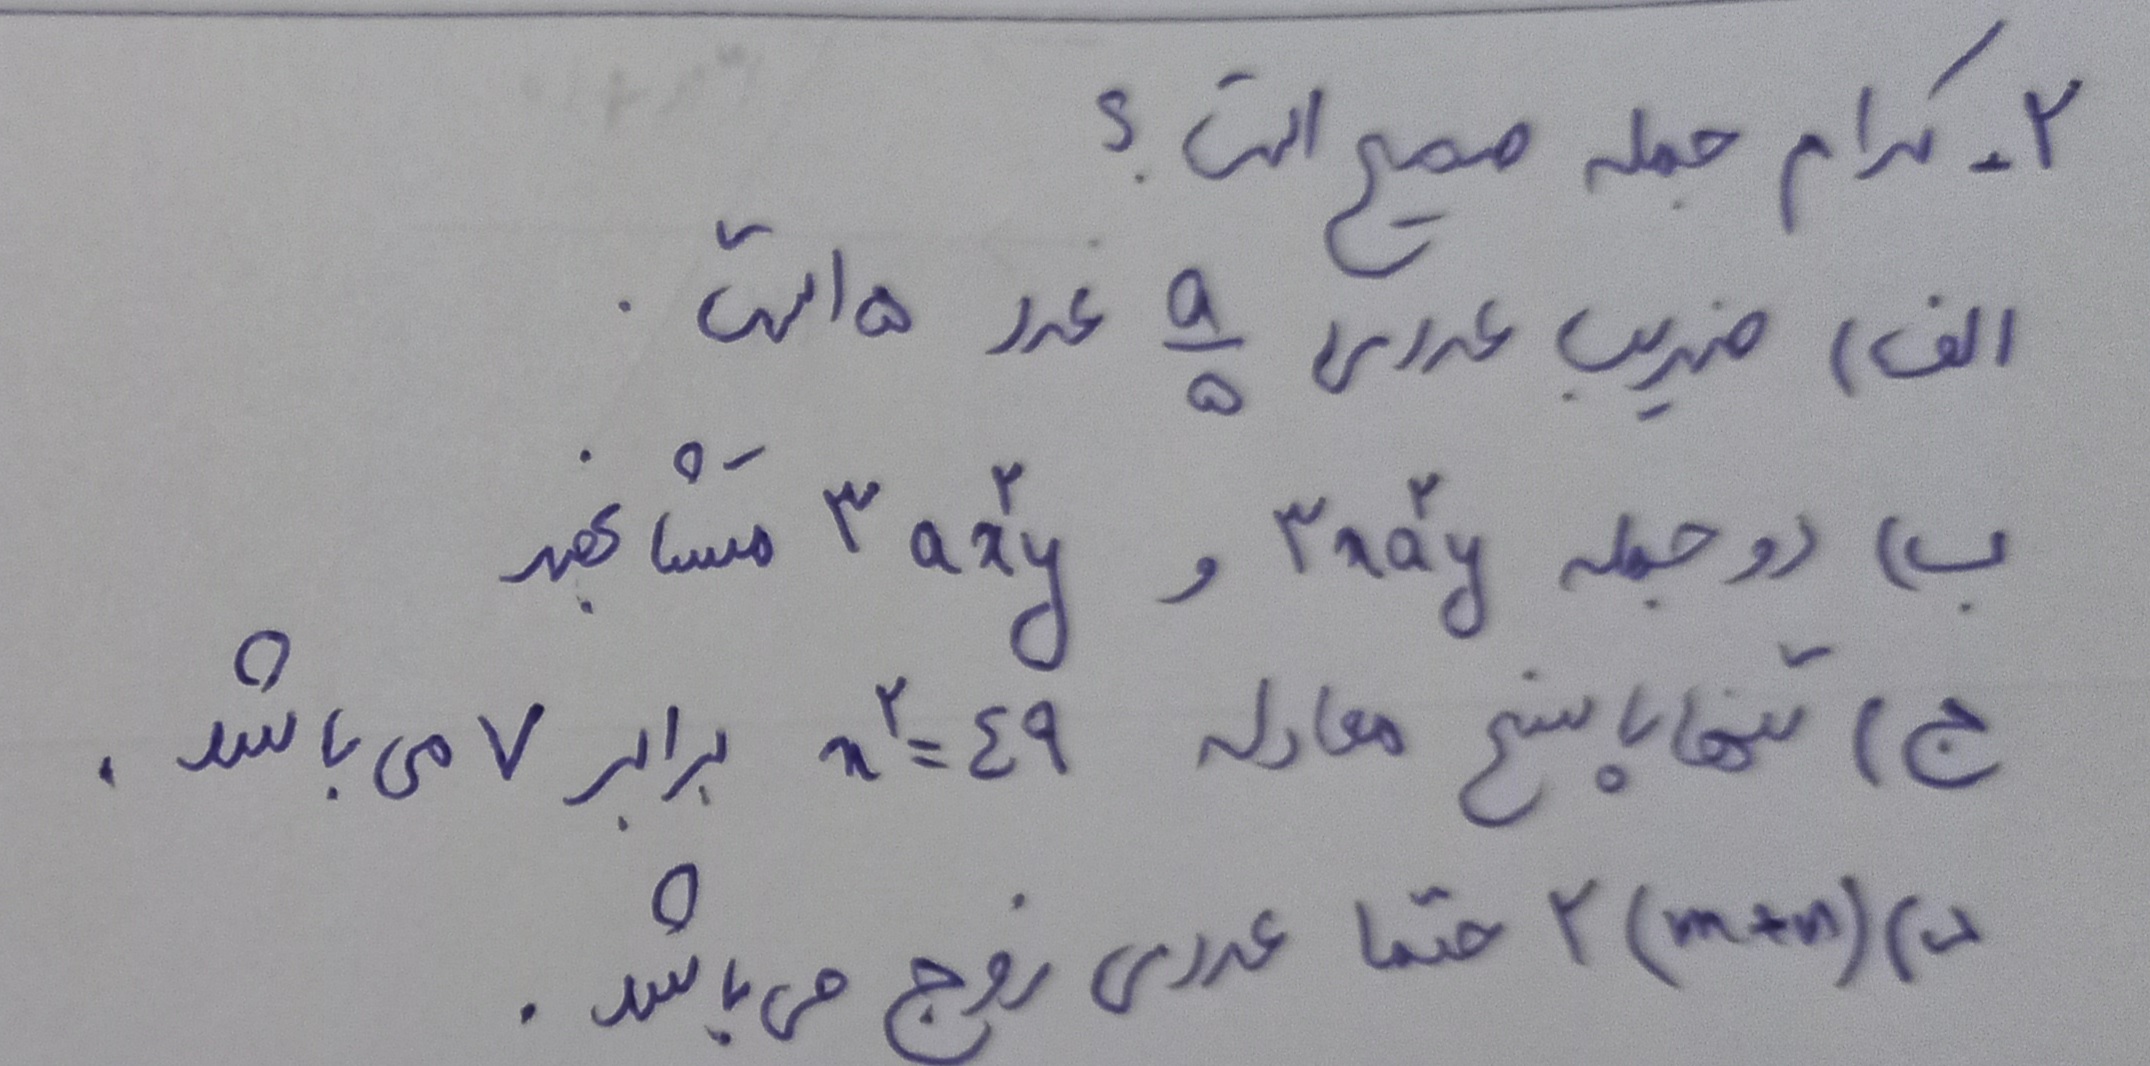 ۲- کدام جمله صحیح است؟
الف) ضریب عددی a/۵ عدد ۵ است.
ب) دو جمله ۳xa²y و ۳ax²y متشابهند
ج) تنها پاسخ معادله x²=٤۹ برابر ۷ می باشد.
د) ۲(m+n) حتما عددی زوج می باشد.